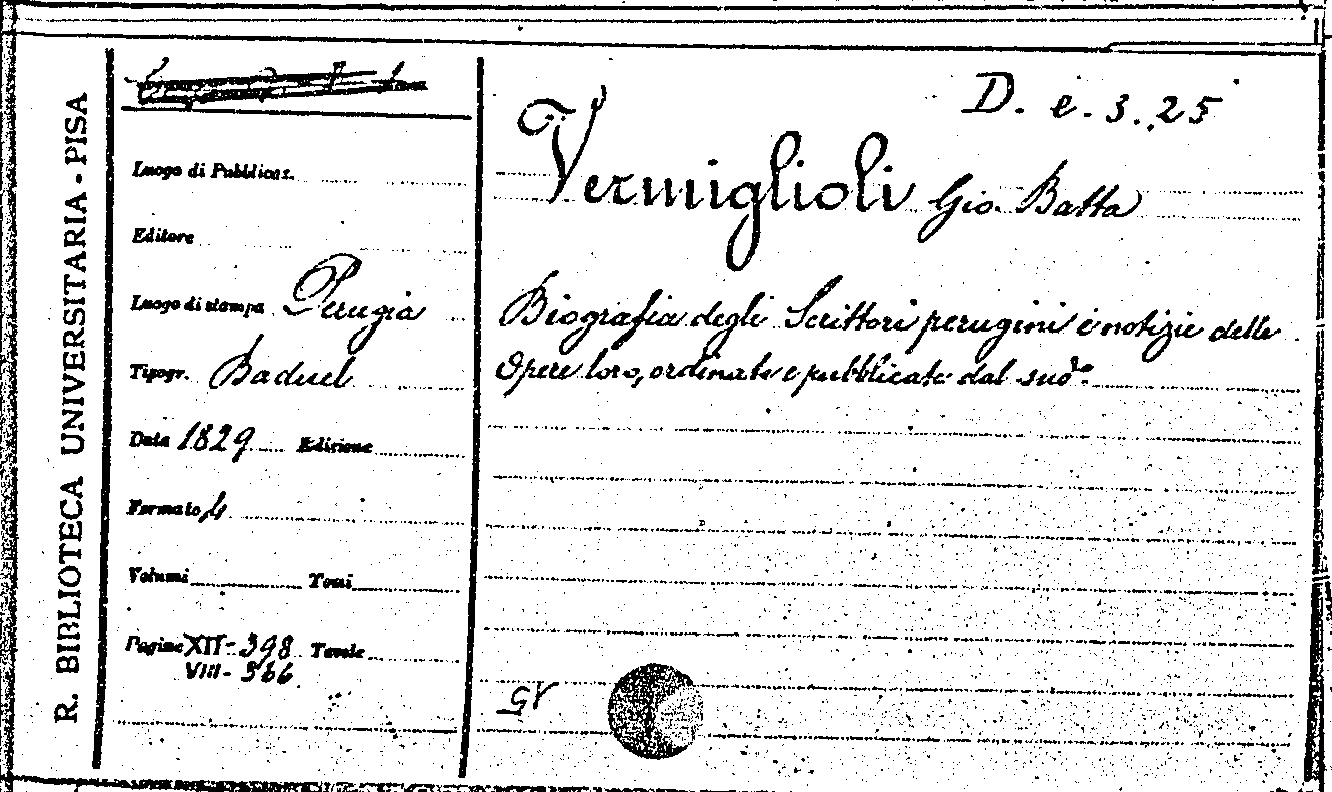 R. BIBLIOTECA UNIVERSITARIA - PISA
D. e. 3. 25
Vermiglioli Gio. Batta
Biografia degli Scrittori perugini e notizie delle
Opere loro, ordinate e pubblicate dal sudº.
Luogo di Pubblicaz.
Editore
Luogo di stampa Perugia
Tipogr. Baduel
Data 1829 Edizione
Formato 4
Volumi Tomi
Pagine XII-398 Tavole
VIII-366